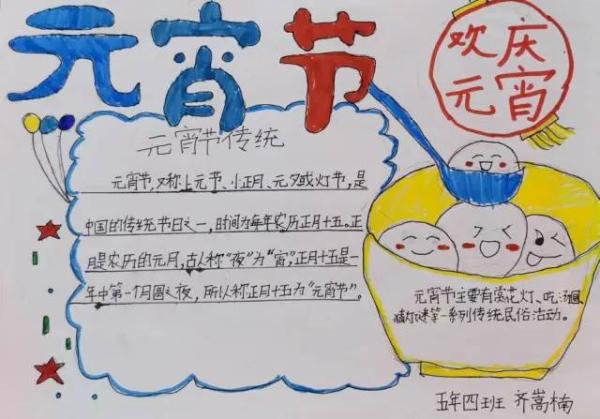 元宵节
欢庆
元宵
元宵节传统
元宵节,又称上元节、小正月、元夕或灯节,是
中国的传统节日之一,时间为每年农历正月十五。正
月是农历的元月,古人称“夜”为“宵”,正月十五是一
年中第一个月圆之夜,所以称正月十五为“元宵节”。
元宵节主要有赏花灯、吃汤圆、
猜灯谜等一系列传统民俗活动。
五年四班 齐嵩楠